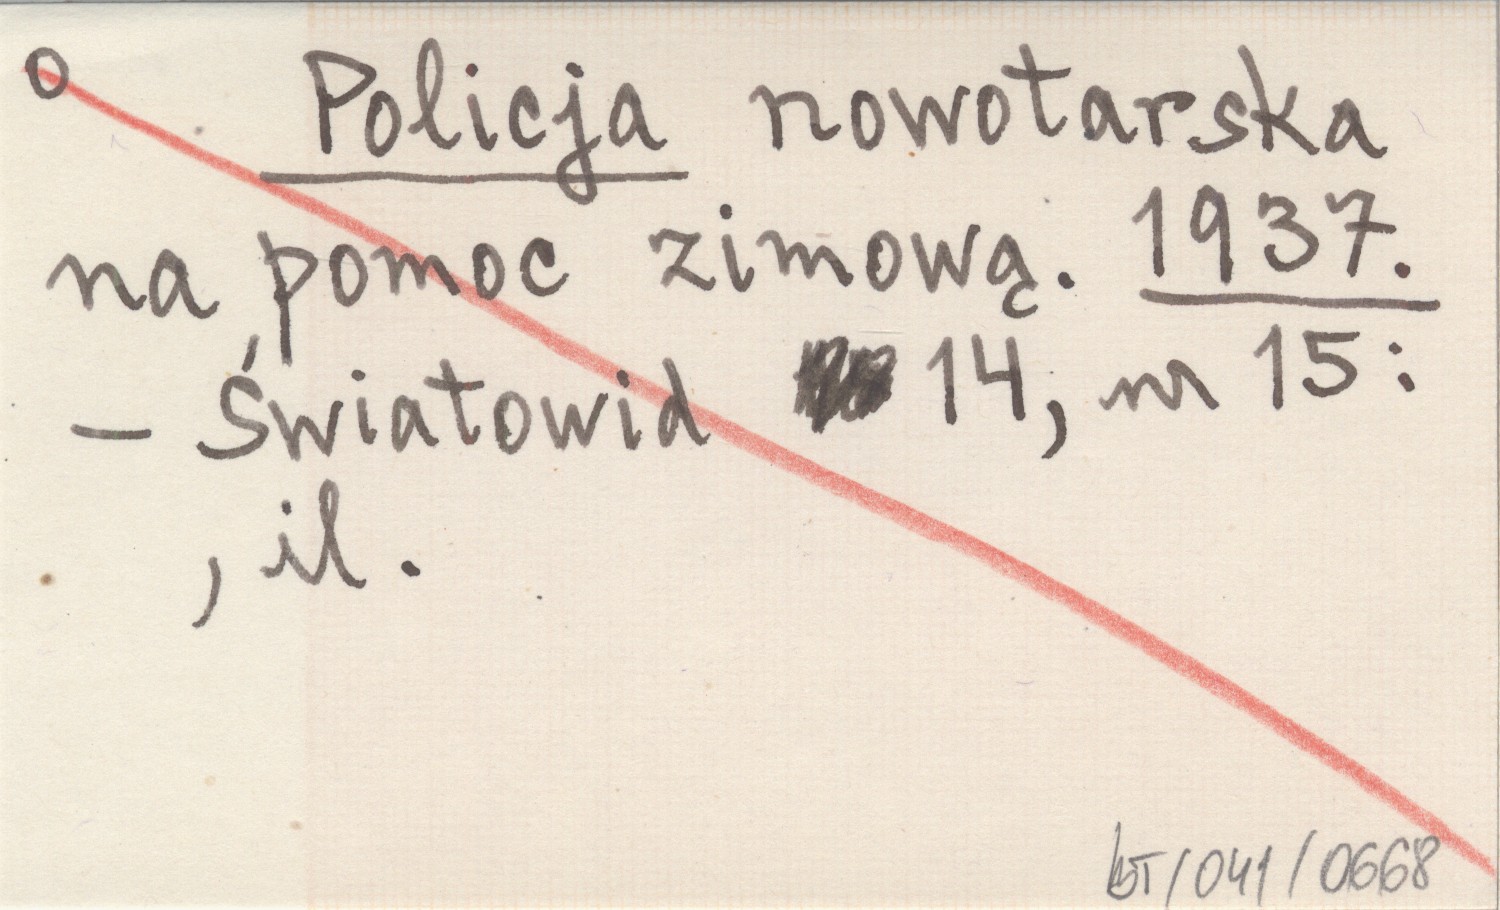 O Policja nowotarska
na pomoc zimową. 1937.
- Światowid 14, nr 15:
, il.
bT/041/0668